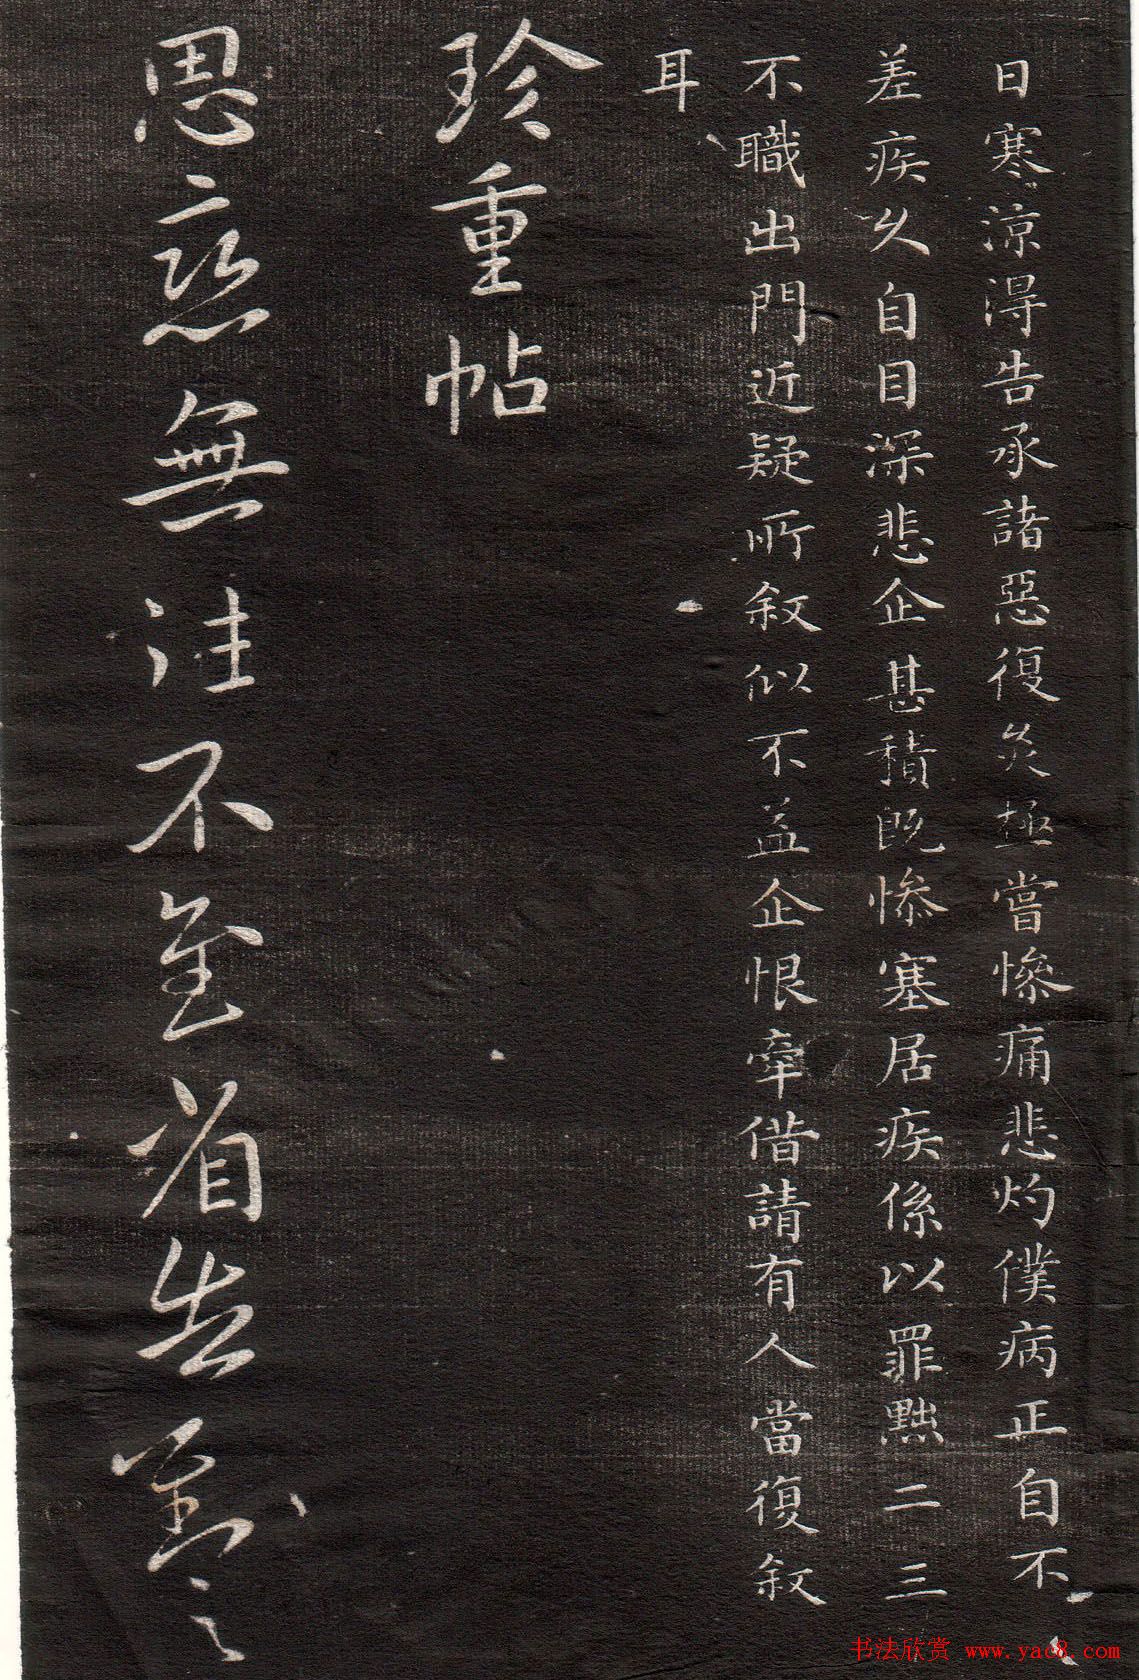 日寒涼淂告承諸惡復灸極嘗慘痛悲灼僕病正自不
差疾久自目深悲企甚積旣慘塞居疾係以罪黜二三
不職出門近疑所叙似不益企恨牽偕請有人當復叙
耳
珍重帖
思戀無往不至省告對之
书法欣赏 www.yac8.com